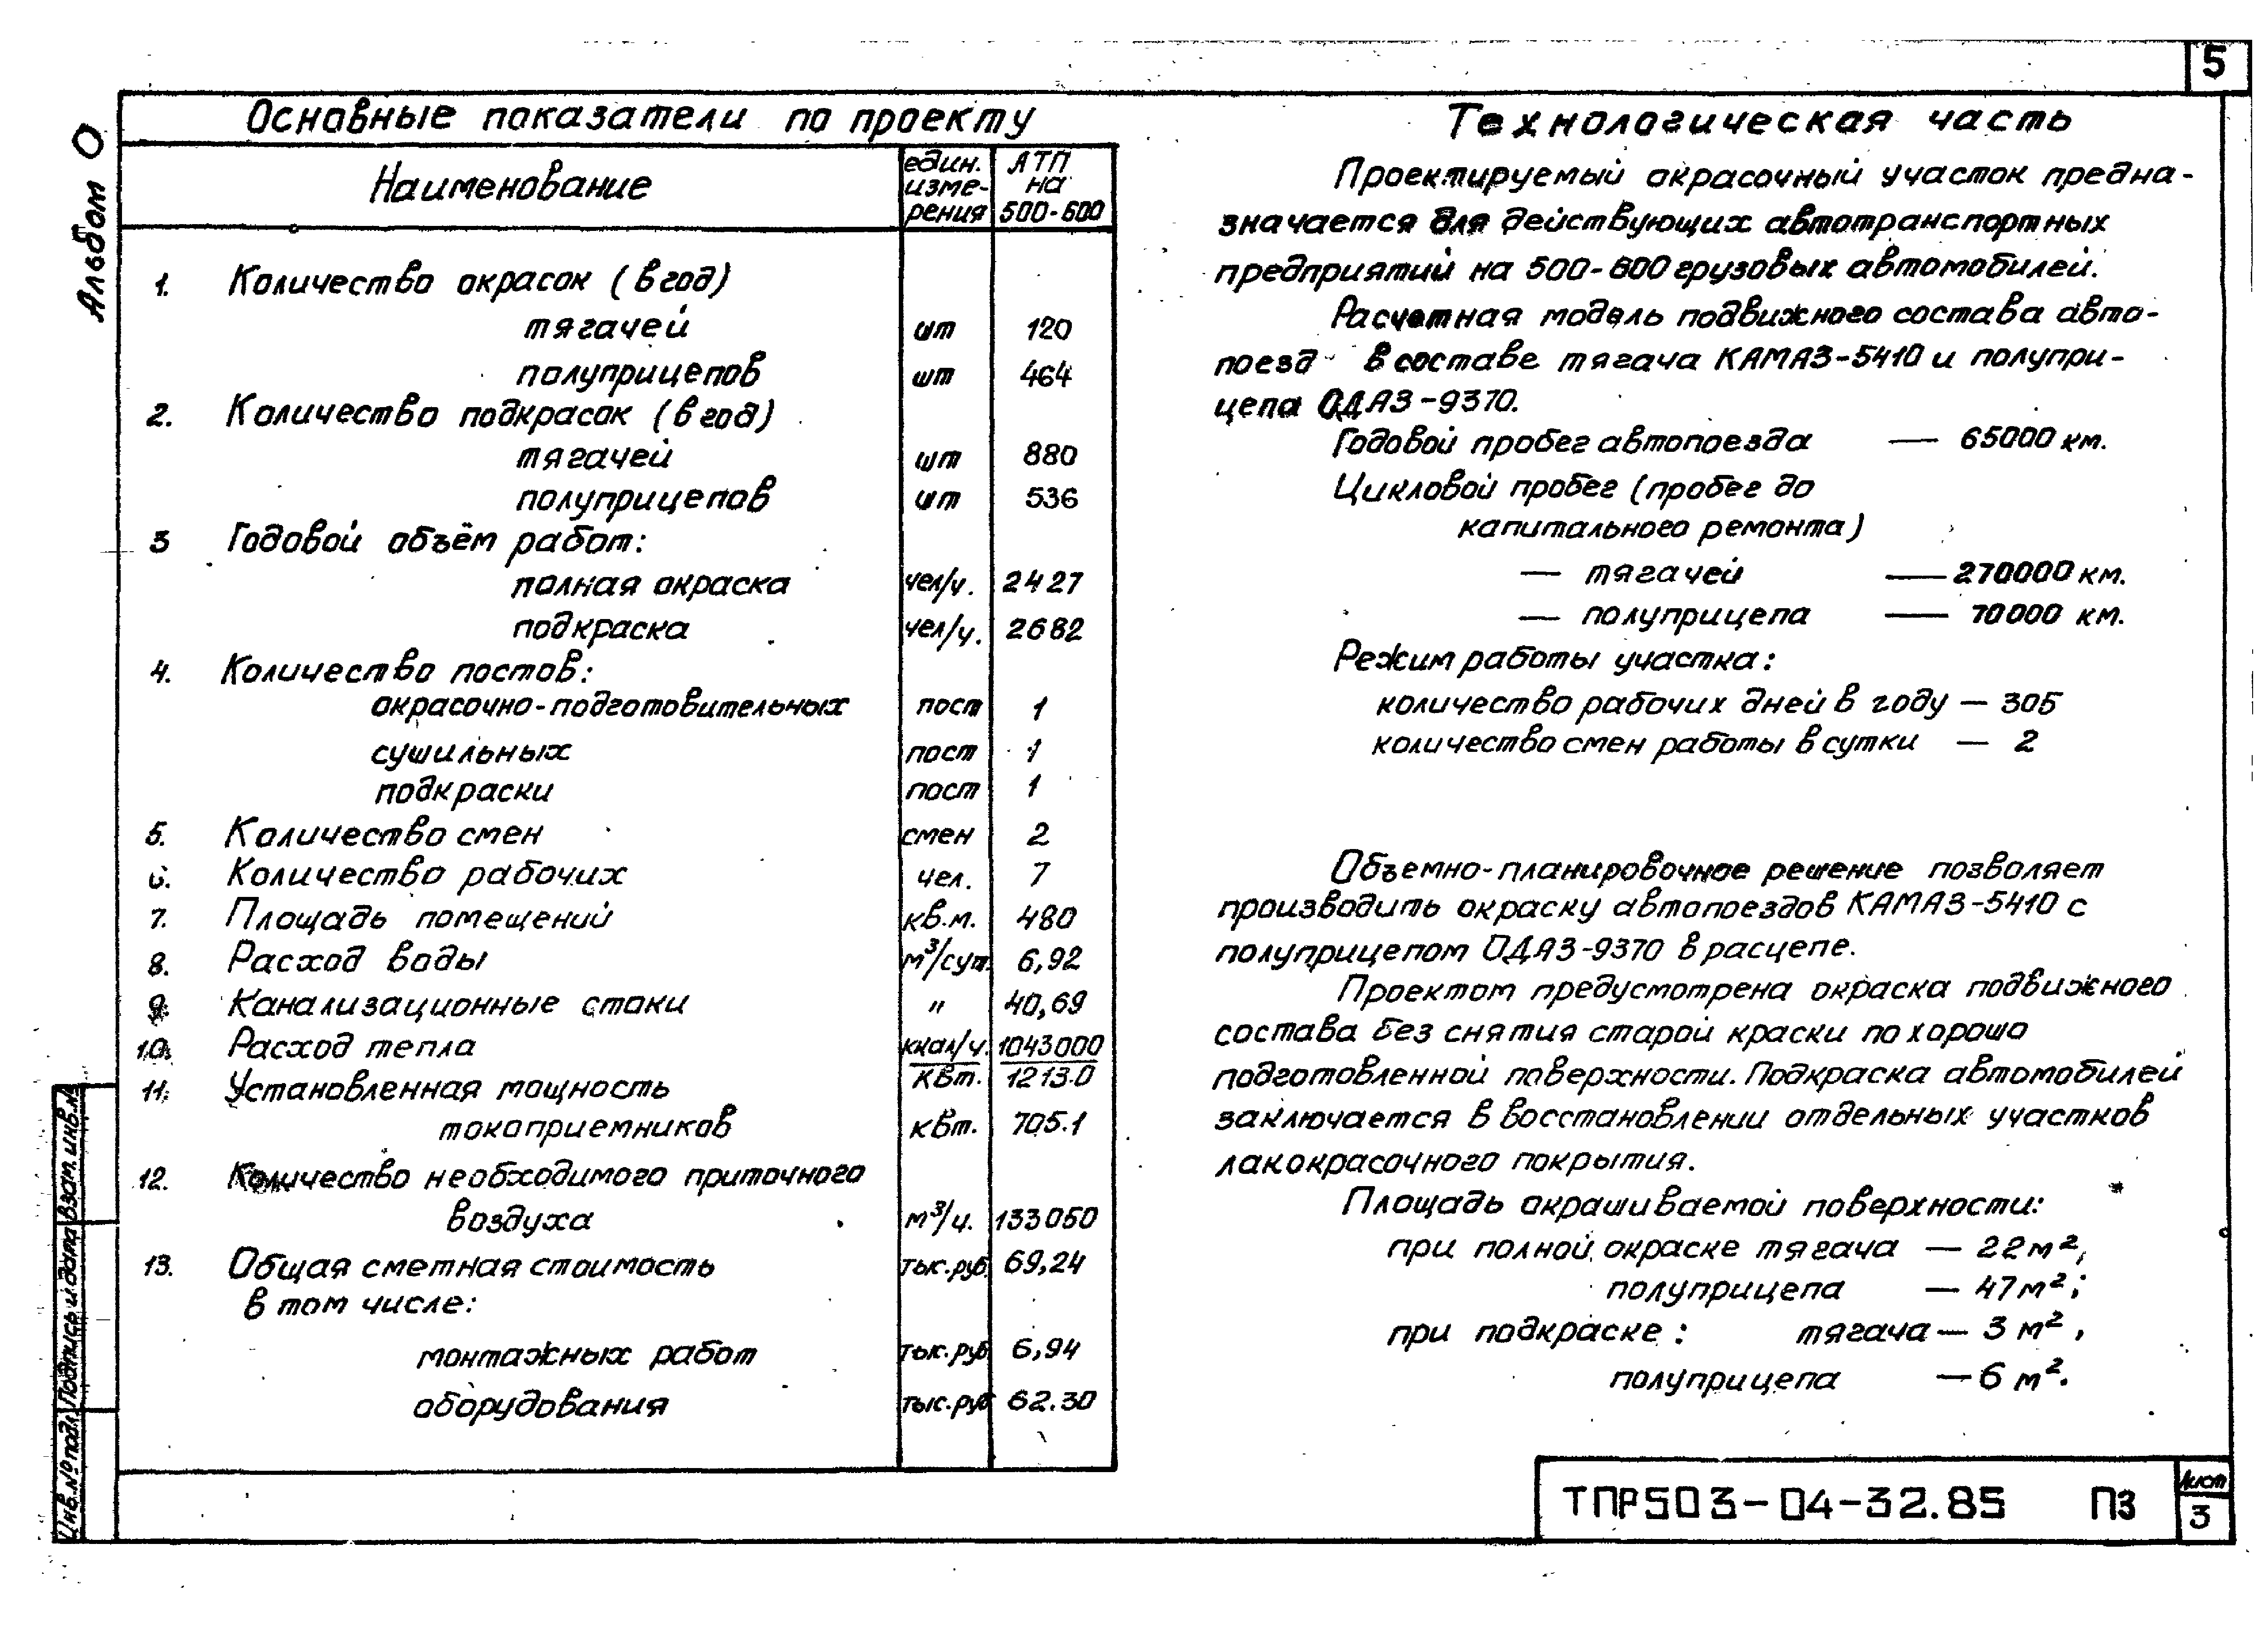 5
Альбом 0
Основные показатели по проекту
Наименование
един. изме- рения
АТП на 500-600
1. Количество окрасок (в год)
тягачей шт 120
полуприцепов шт 464
2. Количество подкрасок (в год)
тягачей шт 880
полуприцепов шт 536
3 Годовой объём работ:
полная окраска чел/ч. 2427
подкраска чел/ч. 2682
4. Количество постов:
окрасочно-подготовительных пост 1
сушильных пост 1
подкраски пост 1
5. Количество смен смен 2
6. Количество рабочих чел. 7
7. Площадь помещений кв.м. 480
8. Расход воды м³/сут. 6,92
9. Канализационные стоки " 40,69
10. Расход тепла ккал/ч. 1043000
квт. 1213.0
11. Установленная мощность
токоприемников квт. 705.1
12. Количество необходимого приточного
воздуха м³/ч. 133050
13. Общая сметная стоимость тыс.руб. 69,24
в том числе:
монтажных работ тыс.руб 6,94
оборудования тыс.руб 62.30
Технологическая часть
Проектируемый окрасочный участок предна-
значается для действующих автотранспортных
предприятий на 500-600 грузовых автомобилей.
Расчетная модель подвижного состава авто-
поезд в составе тягача КАМАЗ-5410 и полупри-
цепа ОДАЗ-9370.
Годовой пробег автопоезда — 65000 км.
Цикловой пробег (пробег до
капитального ремонта)
— тягачей — 270000 км.
— полуприцепа — 70000 км.
Режим работы участка:
количество рабочих дней в году — 305
количество смен работы в сутки — 2
Объемно-планировочное решение позволяет
производить окраску автопоездов КАМАЗ-5410 с
полуприцепом ОДАЗ-9370 в расцепе.
Проектом предусмотрена окраска подвижного
состава без снятия старой краски по хорошо
подготовленной поверхности. Подкраска автомобилей
заключается в восстановлении отдельных участков
лакокрасочного покрытия.
Площадь окрашиваемой поверхности:
при полной окраске тягача — 22 м²,
полуприцепа — 47 м²;
при подкраске: тягача — 3 м²,
полуприцепа — 6 м².
Инв.№ подл. Подпись и дата Взам.инв.№
ТПР503-04-32.85 ПЗ
Лист
3